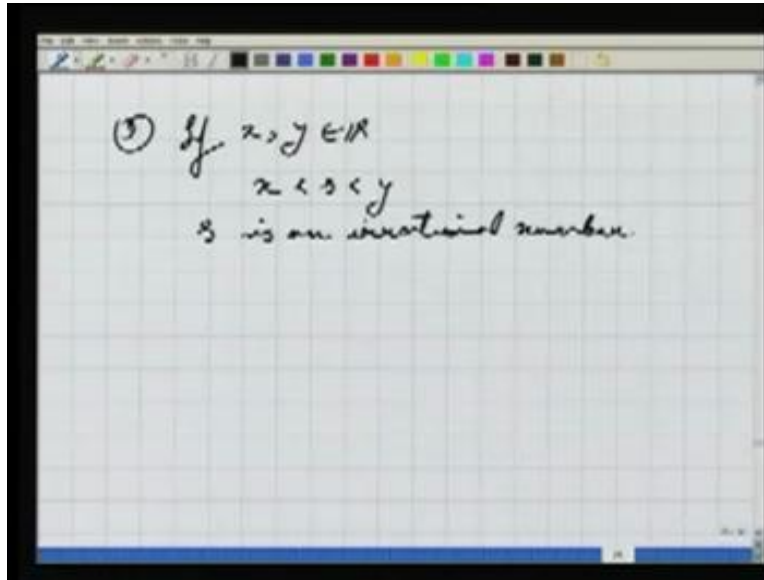 ⑤ If x, y ∈ ℝ
x < s < y
s is an irrational number.